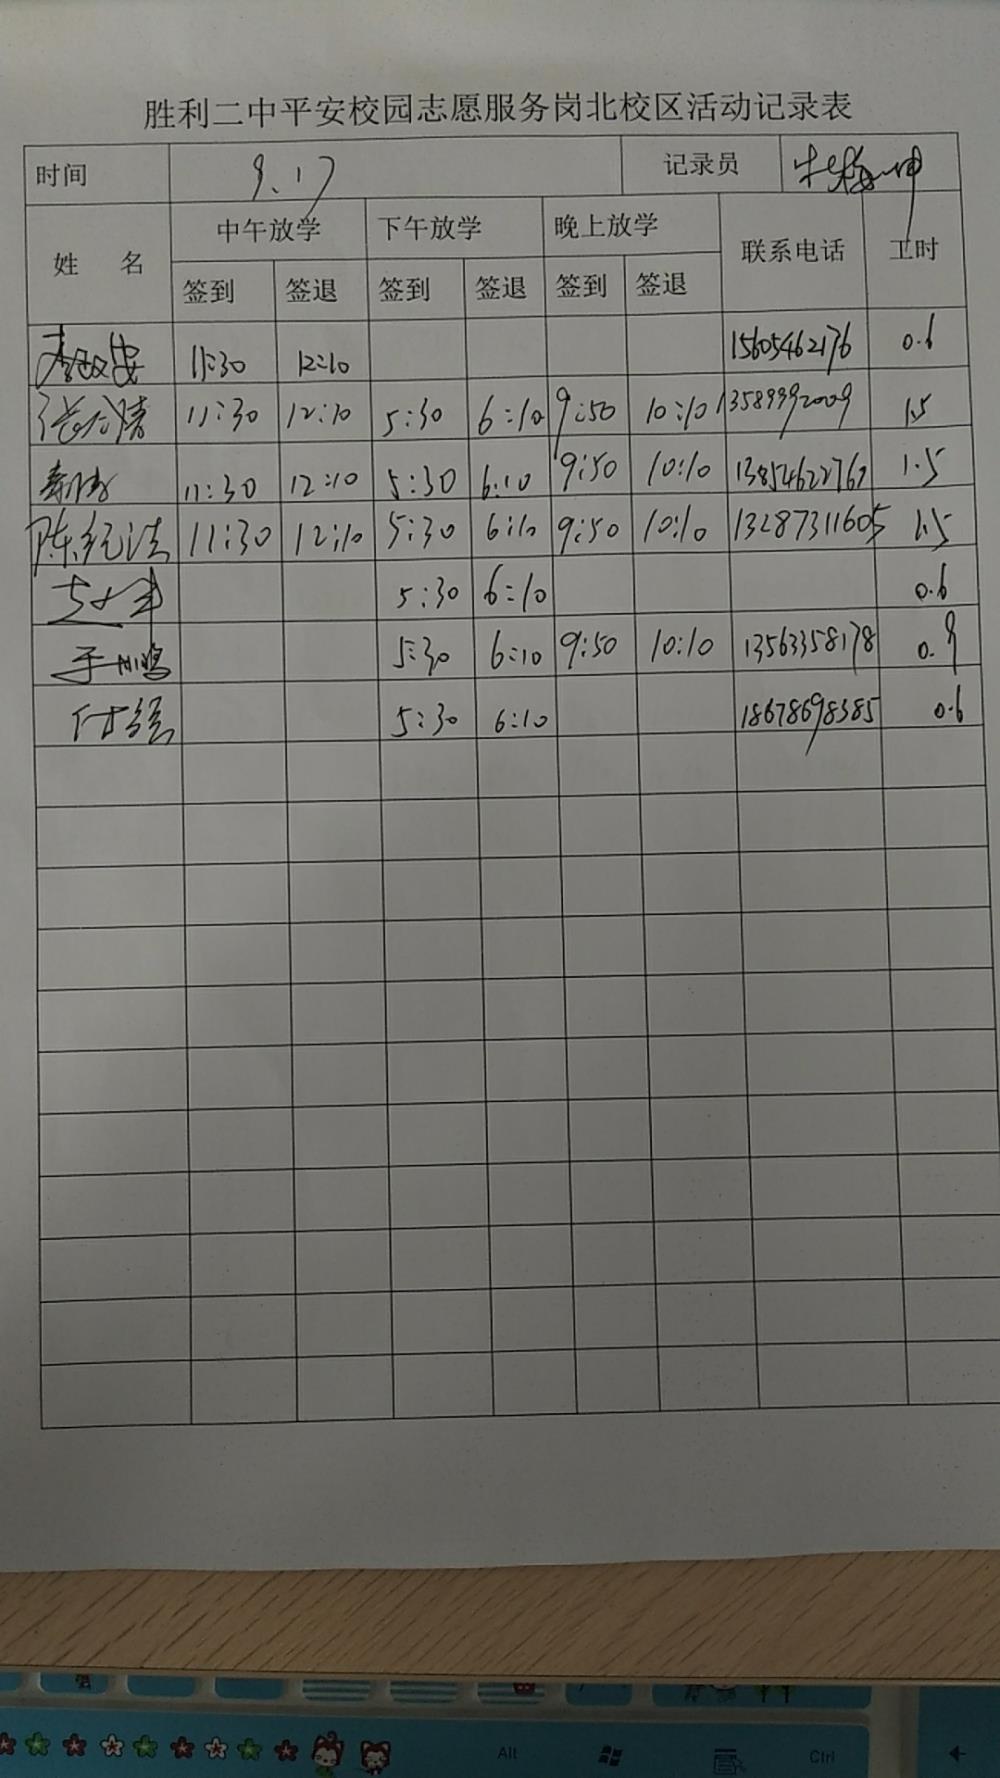 胜利二中平安校园志愿服务岗北校区活动记录表
时间 9.17 记录员
姓 名 中午放学 下午放学 晚上放学 联系电话 工时
签到 签退 签到 签退 签到 签退
11:30 12:10 15605462176 0.6
11:30 12:10 5:30 6:10 9:50 10:10 13589992009 1.5
11:30 12:10 5:30 6:10 9:50 10:10 1.5
陈纪法 11:30 12:10 5:30 6:10 9:50 10:10 13287311605 1.5
5:30 6:10 0.6
5:30 6:10 9:50 10:10 13563358178 0.9
付强 5:30 6:10 18678698385 0.6
Alt Ctrl